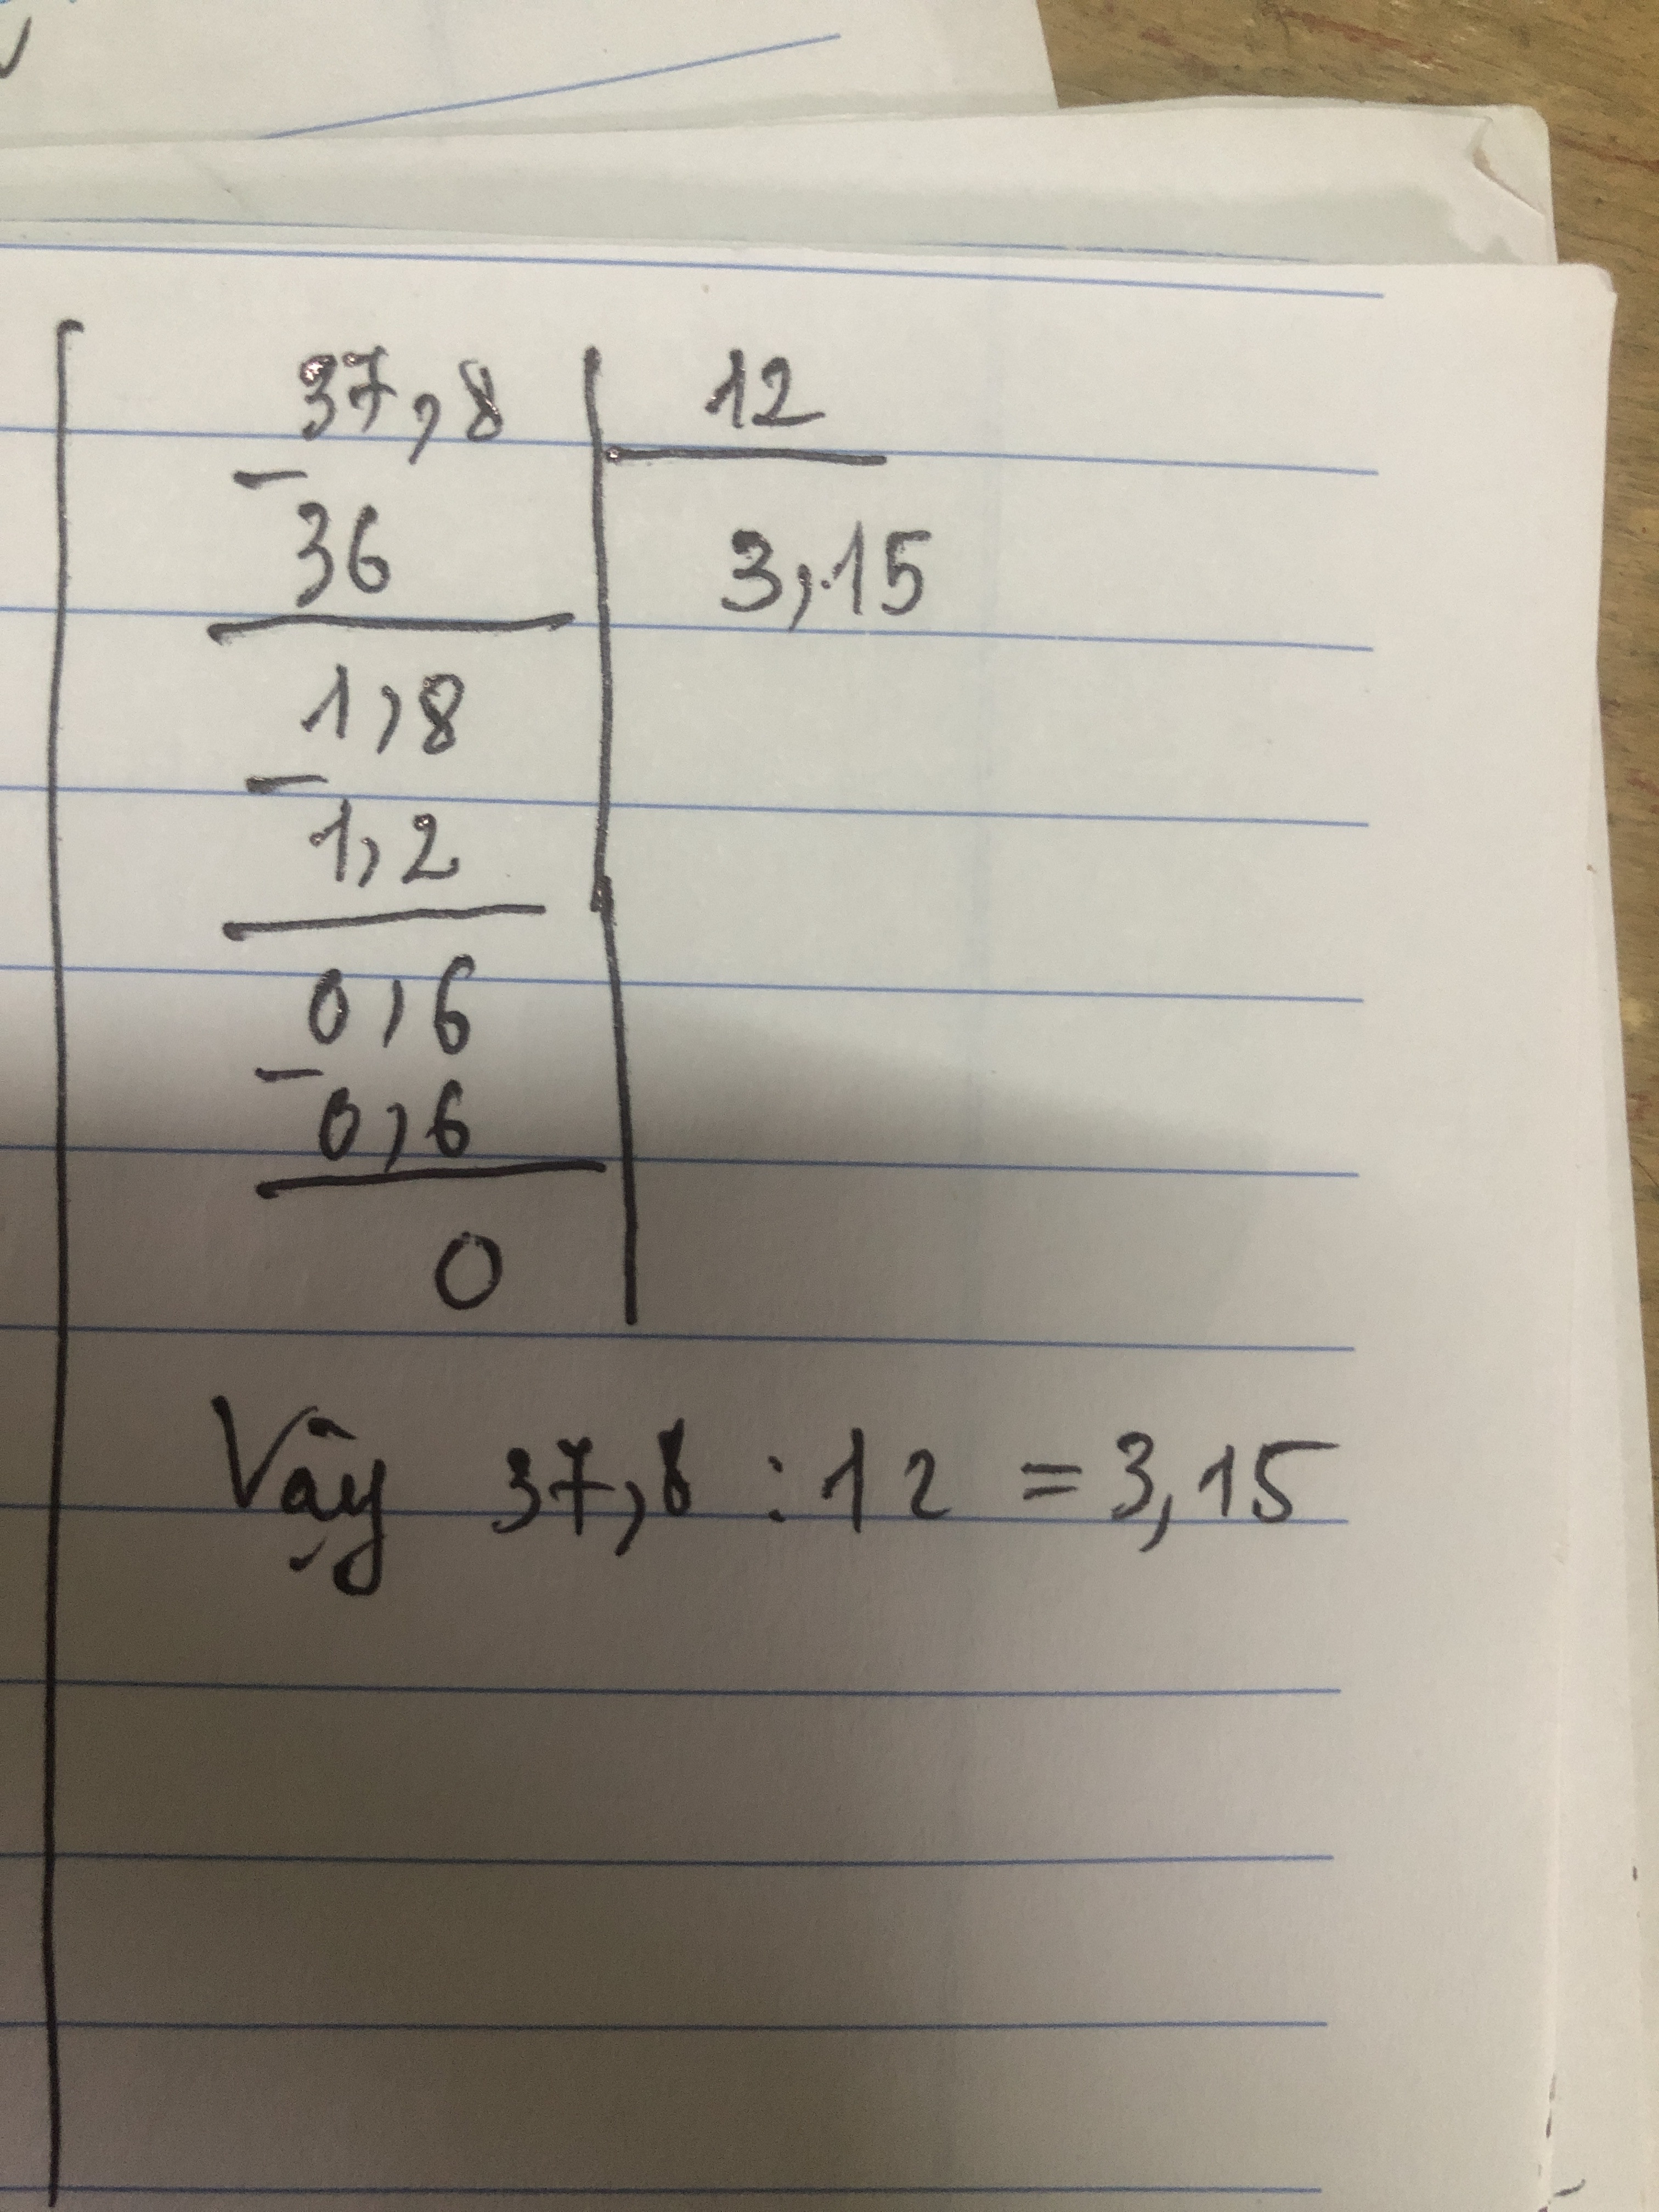 37,8 | 12
- 36 | 3,15
1,8
- 1,2
0,6
- 0,6
0
Vậy 37,8 : 12 = 3,15